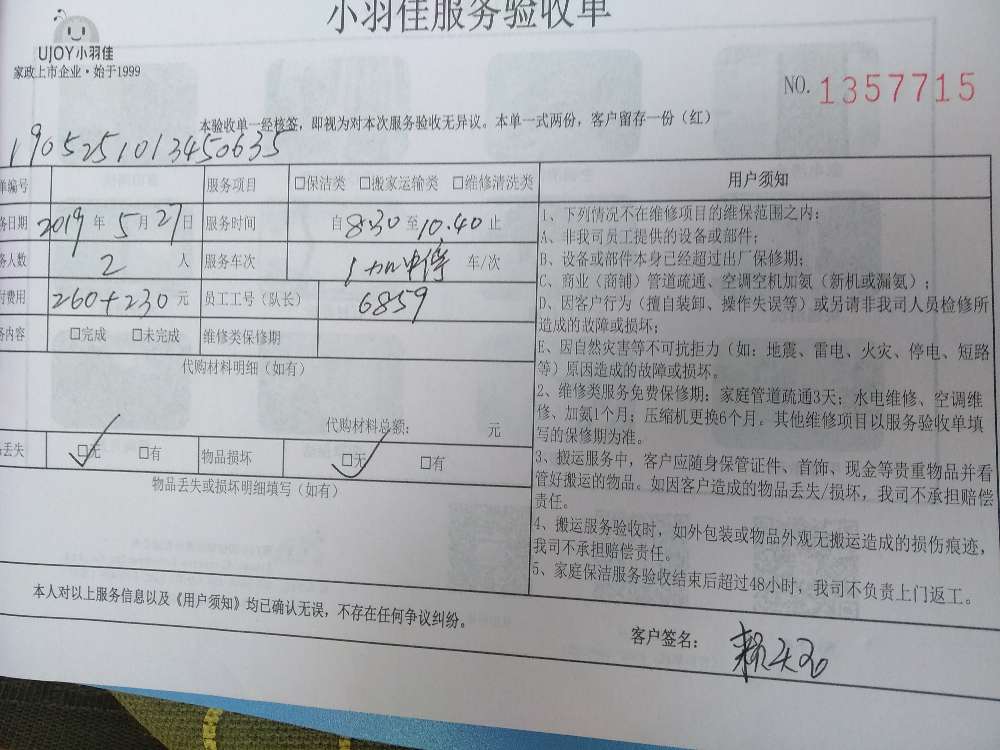 小羽佳服务验收单
UJOY小羽佳
家政上市企业·始于1999
NO. 1357715
本验收单一经核签,即视为对本次服务验收无异议。本单一式两份,客户留存一份(红)
1905251013450635
单编号 服务项目 □保洁类 □搬家运输类 □维修清洗类
务日期 2019 年 5 月 27 日 服务时间 自 8:30 至 10.40 止
务人数 2 人 服务车次 1 加中停 车/次
付费用 260+230 元 员工工号(队长) 6859
务内容 □完成 □未完成 维修类保修期
代购材料明细(如有)
代购材料总额: 元
丢失 □无 □有 物品损坏 □无 □有
物品丢失或损坏明细填写(如有)
用户须知
1、下列情况不在维修项目的维保范围之内:
A、非我司员工提供的设备或部件;
B、设备或部件本身已经超过出厂保修期;
C、商业(商铺)管道疏通、空调空机加氨(新机或漏氨);
D、因客户行为(擅自装卸、操作失误等)或另请非我司人员检修所
造成的故障或损坏;
E、因自然灾害等不可抗拒力(如:地震、雷电、火灾、停电、短路
等)原因造成的故障或损坏。
2、维修类服务免费保修期:家庭管道疏通3天;水电维修、空调维
修、加氨1个月;压缩机更换6个月。其他维修项目以服务验收单填
写的保修期为准。
3、搬运服务中,客户应随身保管证件、首饰、现金等贵重物品并看
管好搬运的物品。如因客户造成的物品丢失/损坏,我司不承担赔偿
责任。
4、搬运服务验收时,如外包装或物品外观无搬运造成的损伤痕迹,
我司不承担赔偿责任。
5、家庭保洁服务验收结束后超过48小时,我司不负责上门返工。
本人对以上服务信息以及《用户须知》均已确认无误,不存在任何争议纠纷。
客户签名: